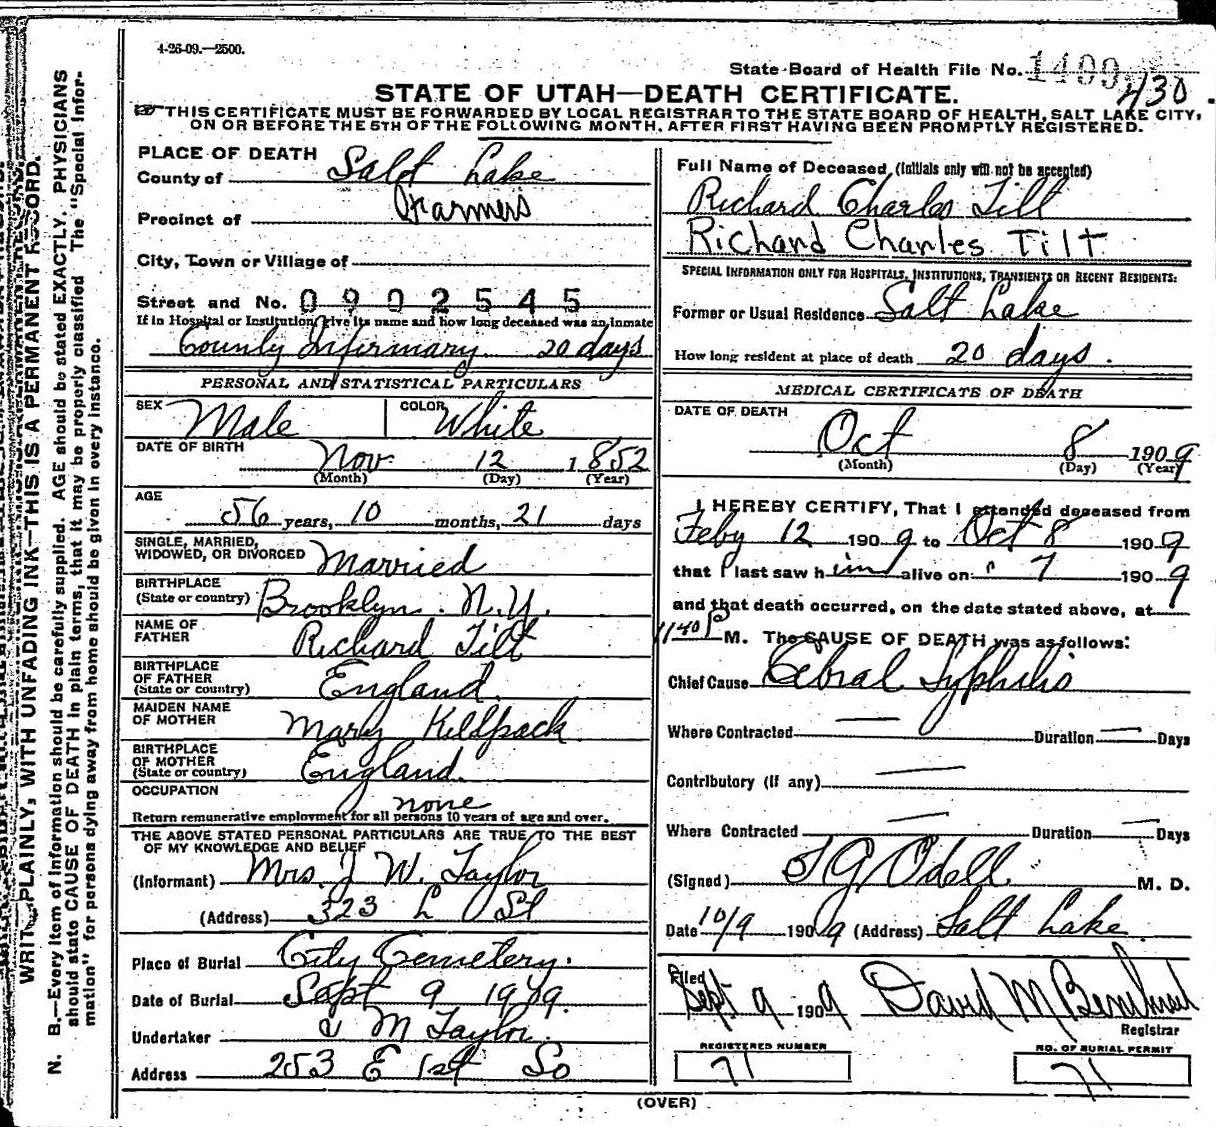 4-26-09.—2500.
State Board of Health File No. 1409 430
STATE OF UTAH—DEATH CERTIFICATE.
THIS CERTIFICATE MUST BE FORWARDED BY LOCAL REGISTRAR TO THE STATE BOARD OF HEALTH, SALT LAKE CITY,
ON OR BEFORE THE 5TH OF THE FOLLOWING MONTH, AFTER FIRST HAVING BEEN PROMPTLY REGISTERED.
PLACE OF DEATH
County of Salt Lake
Precinct of Farmers
City, Town or Village of
Street and No. 0902545
If in Hospital or Institution, give its name and how long deceased was an inmate
County Infirmary 20 days
PERSONAL AND STATISTICAL PARTICULARS
SEX Male COLOR White
DATE OF BIRTH Nov 12 1852
(Month) (Day) (Year)
AGE 56 years, 10 months, 21 days
SINGLE, MARRIED,
WIDOWED, OR DIVORCED Married
BIRTHPLACE
(State or country) Brooklyn. N.Y.
NAME OF
FATHER Richard Tilt
BIRTHPLACE
OF FATHER
(State or country) England
MAIDEN NAME
OF MOTHER Mary Killpack
BIRTHPLACE
OF MOTHER
(State or country) England.
OCCUPATION none
Return remunerative employment for all persons 10 years of age and over.
THE ABOVE STATED PERSONAL PARTICULARS ARE TRUE TO THE BEST
OF MY KNOWLEDGE AND BELIEF
(Informant) Mrs. J W. Taylor
(Address) 323 L St
Place of Burial City Cemetery.
Date of Burial Sept 9 1909.
Undertaker M Taylor.
Address 253 E 1st So
Full Name of Deceased, (Initials only will not be accepted)
Richard Charles Tilt
Richard Charles Tilt
SPECIAL INFORMATION ONLY FOR HOSPITALS, INSTITUTIONS, TRANSIENTS OR RECENT RESIDENTS:
Former or Usual Residence Salt Lake
How long resident at place of death 20 days.
MEDICAL CERTIFICATE OF DEATH
DATE OF DEATH
Oct 8 1909
(Month) (Day) (Year)
I HEREBY CERTIFY, That I attended deceased from
Feby 12 1909 to Oct 8 1909
that I last saw him alive on " 7 1909
and that death occurred, on the date stated above, at
1140 P M. The CAUSE OF DEATH was as follows:
Chief Cause Cebral Syphilis
Where Contracted — Duration — Days
Contributory (if any) —
Where Contracted — Duration — Days
(Signed) Odell M. D.
Date 10/9 1909 (Address) Salt Lake
Filed
Sept 9 1909 David M
Registrar
REGISTERED NUMBER
71
NO. OF BURIAL PERMIT
71
(OVER)
WRITE PLAINLY, WITH UNFADING INK—THIS IS A PERMANENT RECORD.
N. B.—Every item of information should be carefully supplied. AGE should be stated EXACTLY. PHYSICIANS
should state CAUSE OF DEATH in plain terms, that it may be properly classified. The "Special Infor-
mation" for persons dying away from home should be given in every instance.